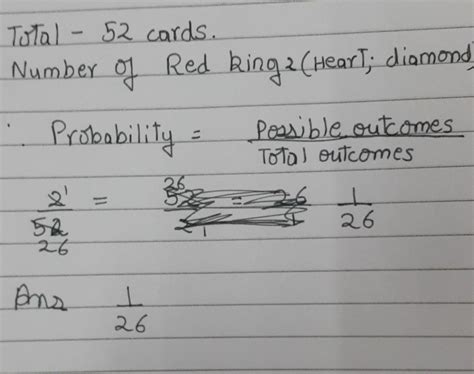 Total - 52 cards.
Number of Red king 2 (Heart; diamond)
∴ Probability = Possible outcomes
Total outcomes
2 1 = 1
52 26
26
Ans 1
26